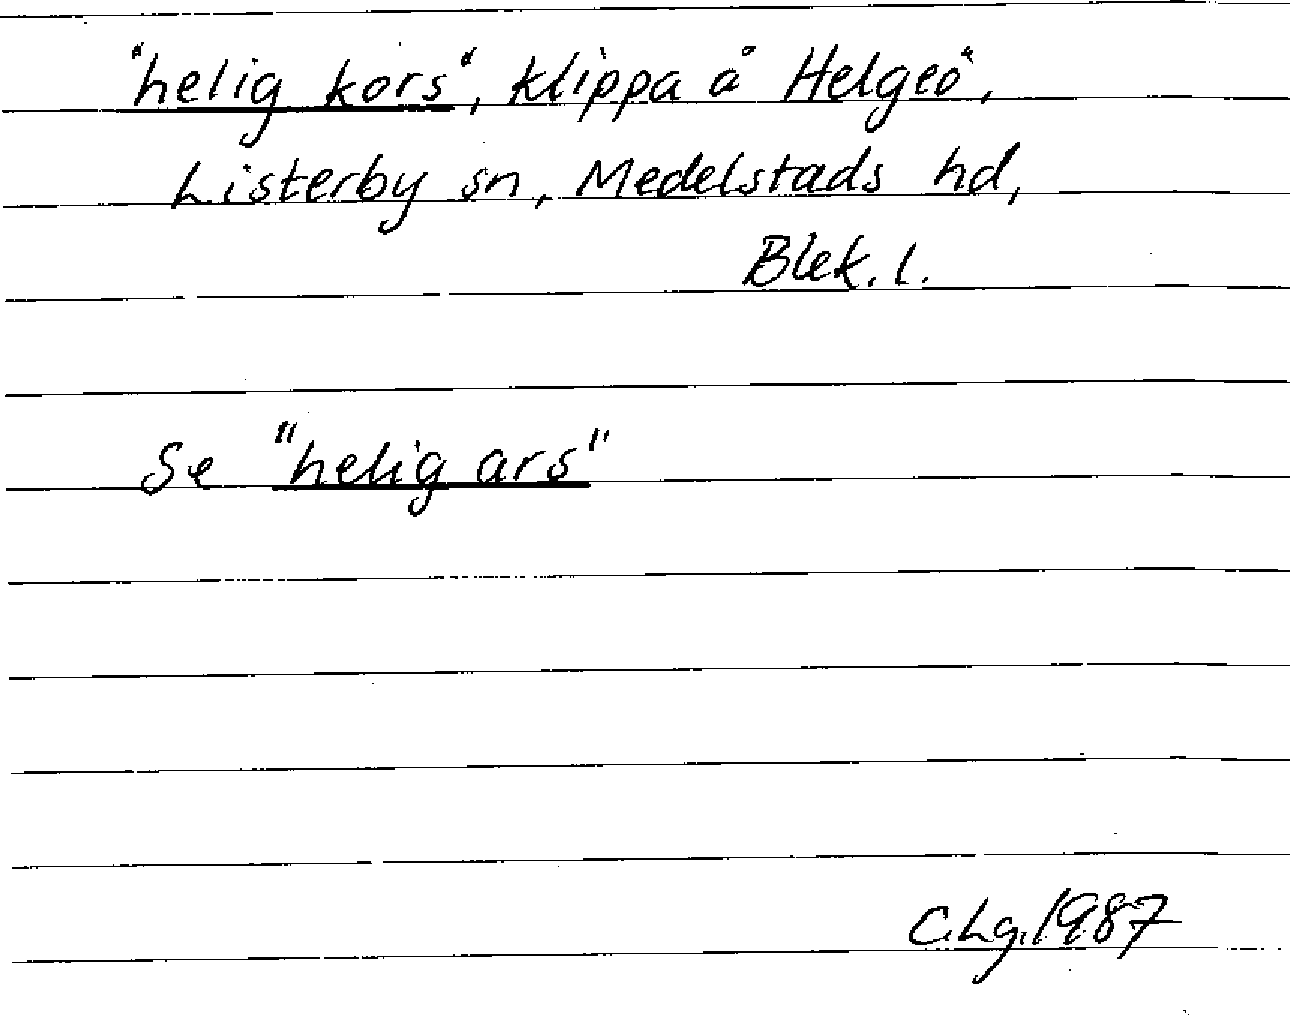 "helig kors", klippa å Helgeö,
Listerby sn, Medelstads hd,
Blek. l.
Se "helig ars"
C.Lg. 1987